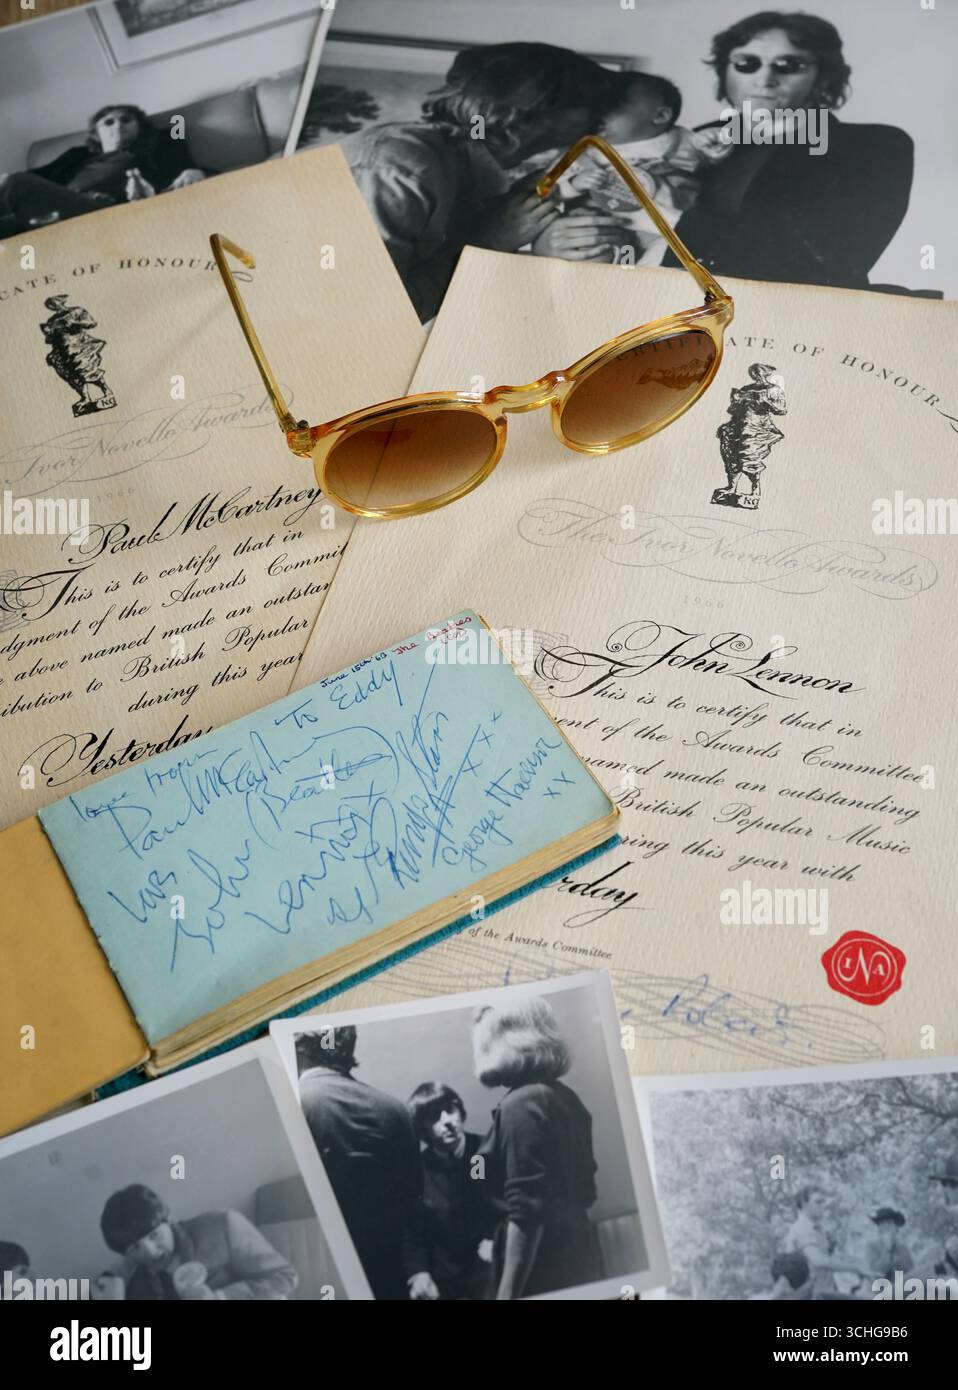 CATE OF HONOUR
Ivor Novello Awards
1966
Paul McCartney
This is to certify that in
dgment of the Awards Commit
above named made an outstan
ibution to British Popular
during this year
Yesterday
CERTIFICATE OF HONOUR
The Ivor Novello Awards
1966
John Lennon
This is to certify that in
ment of the Awards Committee
named made an outstanding
British Popular Music
ring this year with
erday
of the Awards Committee
INA
June 15th '63 The Beatles
To Eddy
love from
Paul McCartney
(Beatle)
love
John
Lennon
x
Ringo Starr
xxx
George Harrison
xx
a
alamy
Image ID: 3CHG9B6
www.alamy.com